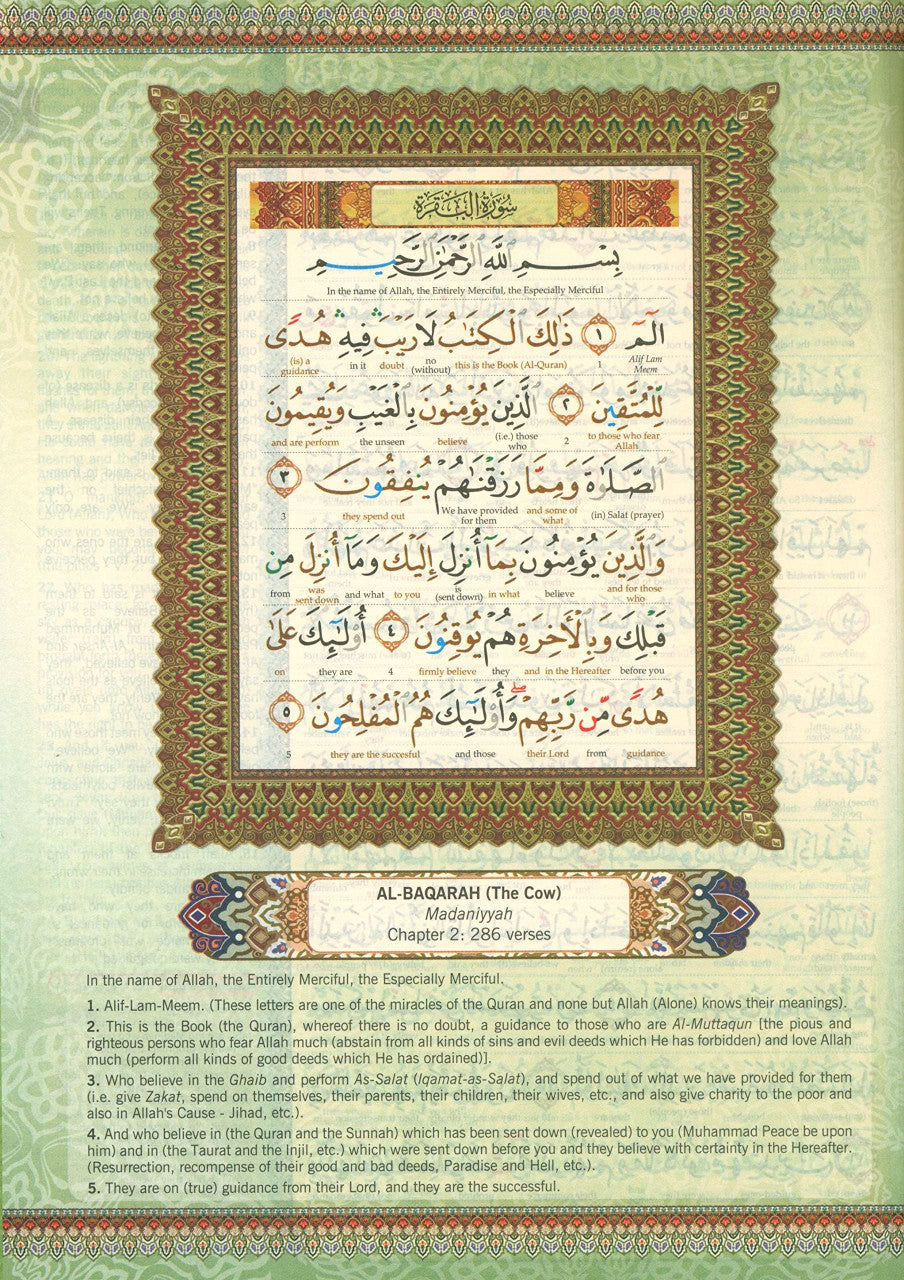 سُورَةُ الْبَقَرَة
بِسْمِ اللَّهِ الرَّحْمَٰنِ الرَّحِيمِ
In the name of Allah, the Entirely Merciful, the Especially Merciful
الٓمٓ ١ ذَٰلِكَ الْكِتَٰبُ لَا رَيْبَ فِيهِ هُدًى
Alif Lam Meem 1 this is the Book (Al-Quran) no (without) doubt in it (is) a guidance
لِّلْمُتَّقِينَ ٢ الَّذِينَ يُؤْمِنُونَ بِالْغَيْبِ وَيُقِيمُونَ
to those who fear Allah 2 (i.e.) those who believe the unseen and are perform
الصَّلَوٰةَ وَمِمَّا رَزَقْنَٰهُمْ يُنفِقُونَ ٣
(in) Salat (prayer) and some of what We have provided for them they spend out 3
وَالَّذِينَ يُؤْمِنُونَ بِمَآ أُنزِلَ إِلَيْكَ وَمَآ أُنزِلَ مِن
and for those who believe in what is (sent down) to you and what was sent down from
قَبْلِكَ وَبِالْأَخِرَةِ هُمْ يُوقِنُونَ ٤ أُوْلَٰٓئِكَ عَلَىٰ
before you and in the Hereafter they firmly believe 4 they are on
هُدًى مِّن رَّبِّهِمْ ۖ وَأُوْلَٰٓئِكَ هُمُ الْمُفْلِحُونَ ٥
guidance from their Lord and those they are the succesful 5
AL-BAQARAH (The Cow)
Madaniyyah
Chapter 2: 286 verses
In the name of Allah, the Entirely Merciful, the Especially Merciful.
1. Alif-Lam-Meem. (These letters are one of the miracles of the Quran and none but Allah (Alone) knows their meanings).
2. This is the Book (the Quran), whereof there is no doubt, a guidance to those who are Al-Muttaqun [the pious and
righteous persons who fear Allah much (abstain from all kinds of sins and evil deeds which He has forbidden) and love Allah
much (perform all kinds of good deeds which He has ordained)].
3. Who believe in the Ghaib and perform As-Salat (Iqamat-as-Salat), and spend out of what we have provided for them
(i.e. give Zakat, spend on themselves, their parents, their children, their wives, etc., and also give charity to the poor and
also in Allah's Cause - Jihad, etc.).
4. And who believe in (the Quran and the Sunnah) which has been sent down (revealed) to you (Muhammad Peace be upon
him) and in (the Taurat and the Injil, etc.) which were sent down before you and they believe with certainty in the Hereafter.
(Resurrection, recompense of their good and bad deeds, Paradise and Hell, etc.).
5. They are on (true) guidance from their Lord, and they are the successful.